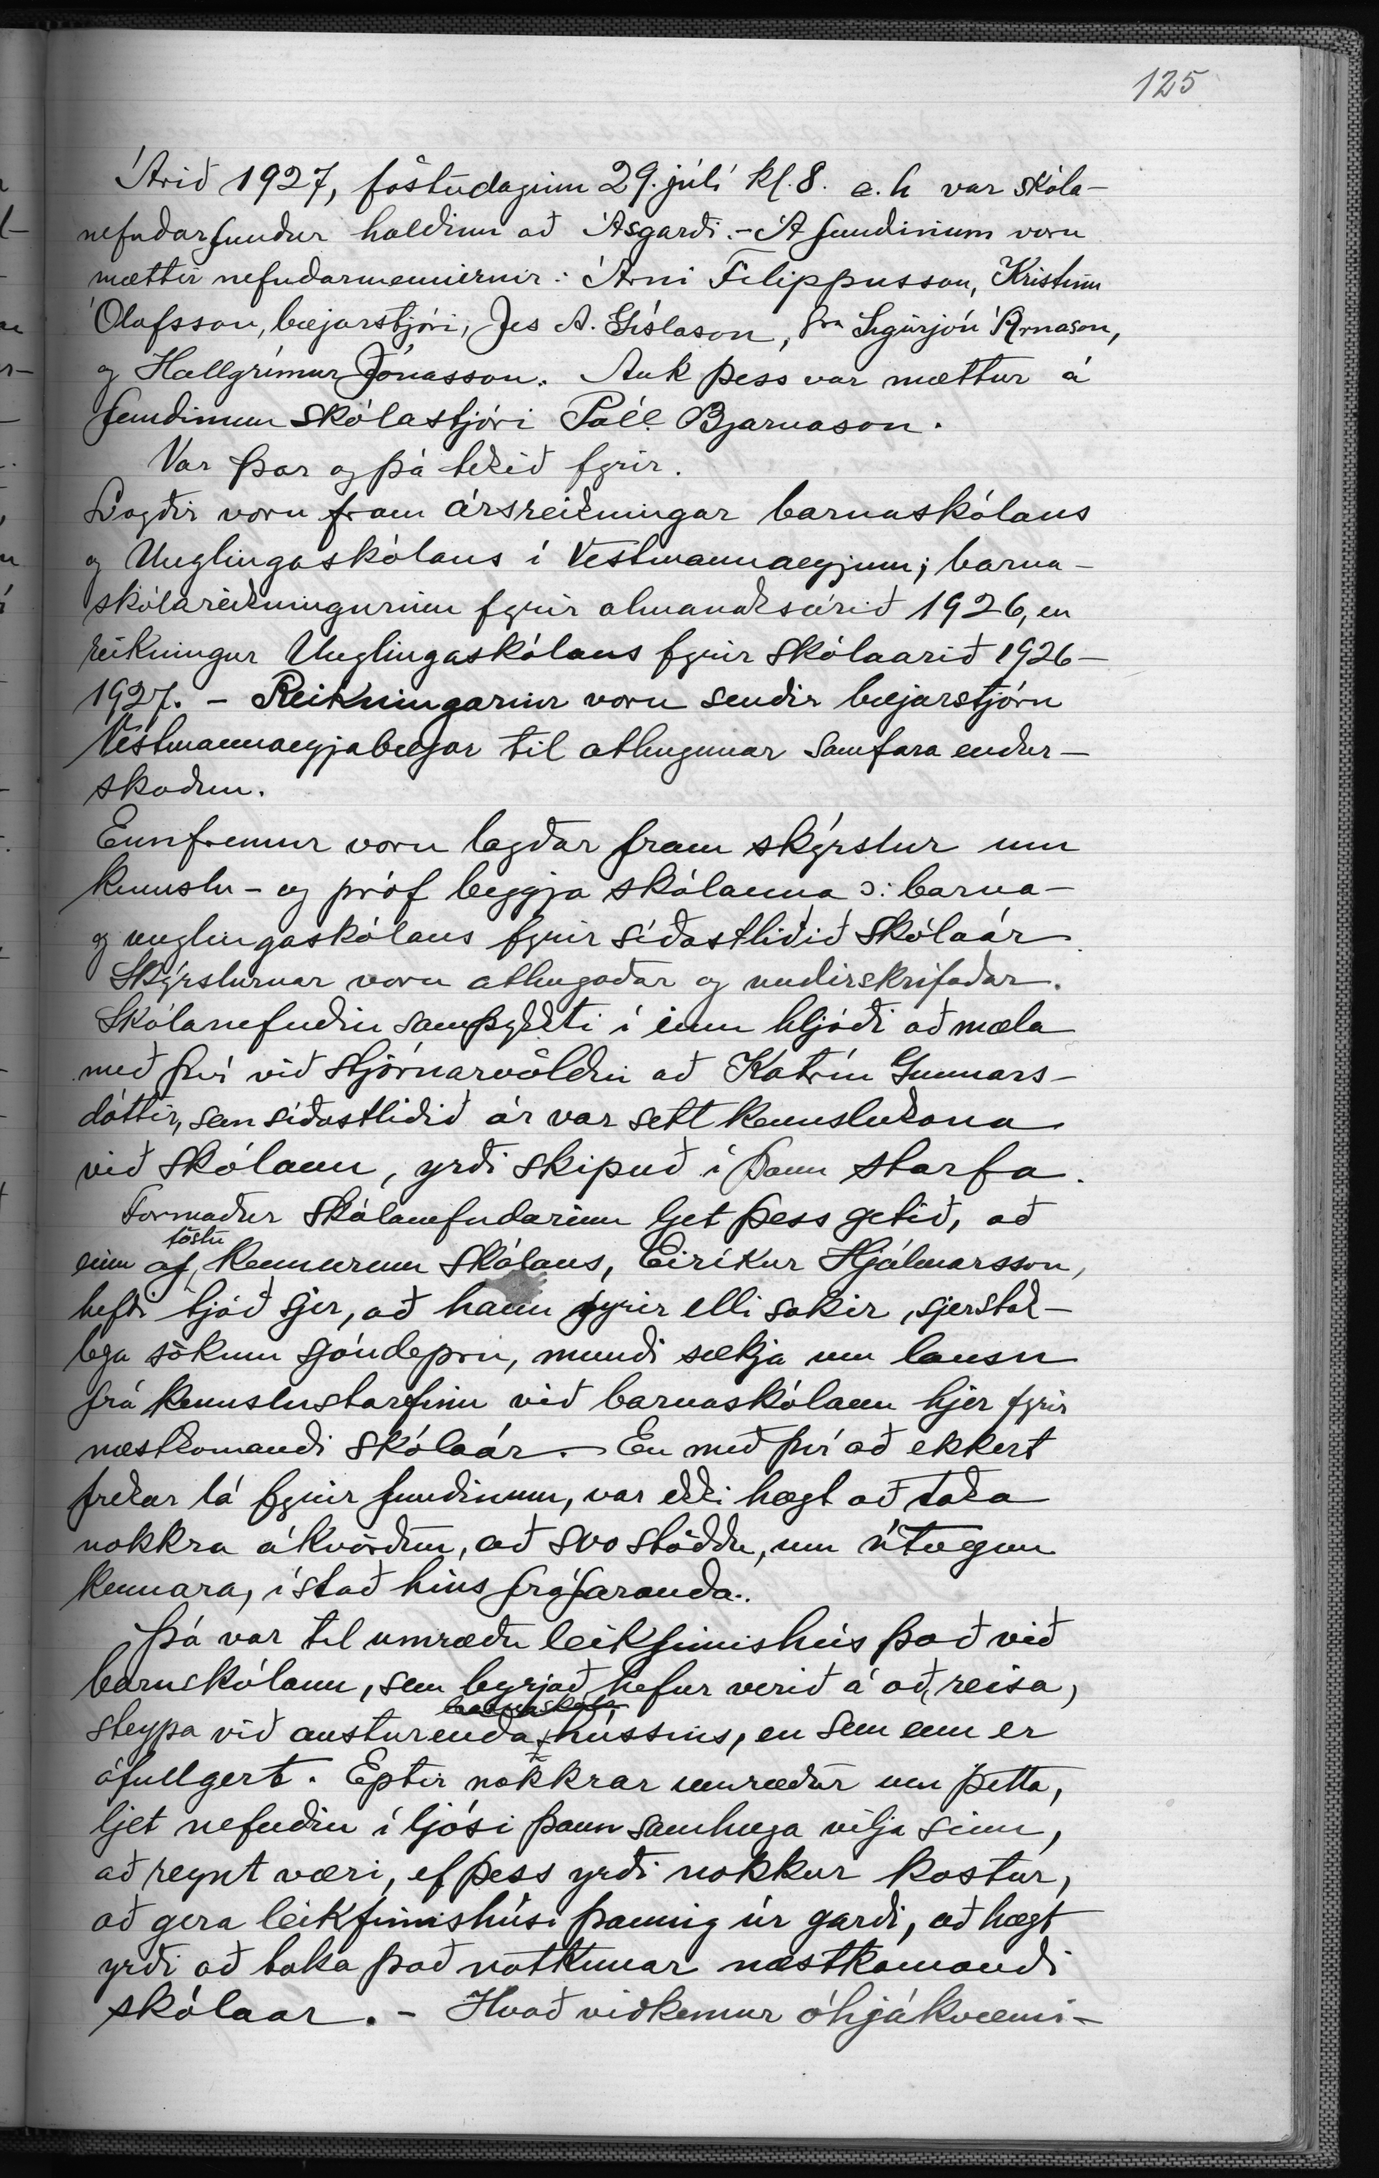 125
Árið 1927, föstudaginn 29. júlí kl. 8. e.h var skóla-
nefndarfundur haldinn að Ásgarði. - Á fundinum voru
mættir nefndarmennirnir: Árni Filippusson, Kristinn
Ólafsson, bæjarstjóri, Jes A. Gíslason, sra Sigurjón Árnason,
og Hallgrímur Jónasson. Auk þess var mættur á
fundinum skólastjóri Páll Bjarnason.
Var þar og þá tekið fyrir.
Lagðir voru fram ársreikningar barnaskólans
og Unglingaskólans í Vestmannaeyjum; barna-
skólareikningurinn fyrir almanaksárið 1926, en
reikningur Unglingaskólans fyrir skólaarið 1926-
1927. - Reikningarnir voru sendir bæjarstjórn
Vestmannaeyjabæjar til athugunar samfara endur-
skoðun.
Ennfremur voru lagðar fram skýrslur um
kennslu- og próf beggja skólanna ɔ: barna-
og unglingaskólans fyrir síðastliðið skólaár.
Skýrslurnar voru athugaðar og undirskrifaðar.
Skólanefndin samþykkti í einu hljóði að mæla
með því við stjórnarvöldin að Katrín Gunnars-
dóttir, sem síðastliðið ár var sett kennslukona
við skólann, yrði skipuð í þann starfa.
Formaður skólanefndarinnar ljet þess getið, að
föstu
einn af kennurum skólans, Eiríkur Hjálmarsson,
hefði tjáð sjer, að hann fyrir elli sakir, sjerstak-
lega sökum sjóndepru, mundi sækja um lausn
frá kennslustarfinu við barnaskólann hjer fyrir
næstkomandi skólaár. - En með því að ekkert
frekar lá fyrir fundinum, var ekki hægt að taka
nokkra ákvörðun, að svo stöddu, um útvegun
kennara, í stað hins fráfaranda.
Þá var til umræðu leikfimishús það við
barnskólann, sem byrjað hefur verið á að reisa,
barnaskóla
steypa við austurenda hússins, en sem enn er
ófullgert. Eptir nokkrar umræður um þetta,
ljet nefndin í ljósi þann samhuga vilja sinn,
að reynt væri, ef þess yrði nokkur kostur,
að gera leikfimishúsi þannig úr garði, að hægt
yrði að taka það notkunar næstkomandi
skólaar. - Hvað viðkemur óhjákvæmi-